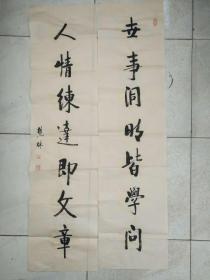 世事洞明皆學问
人情練達即文章